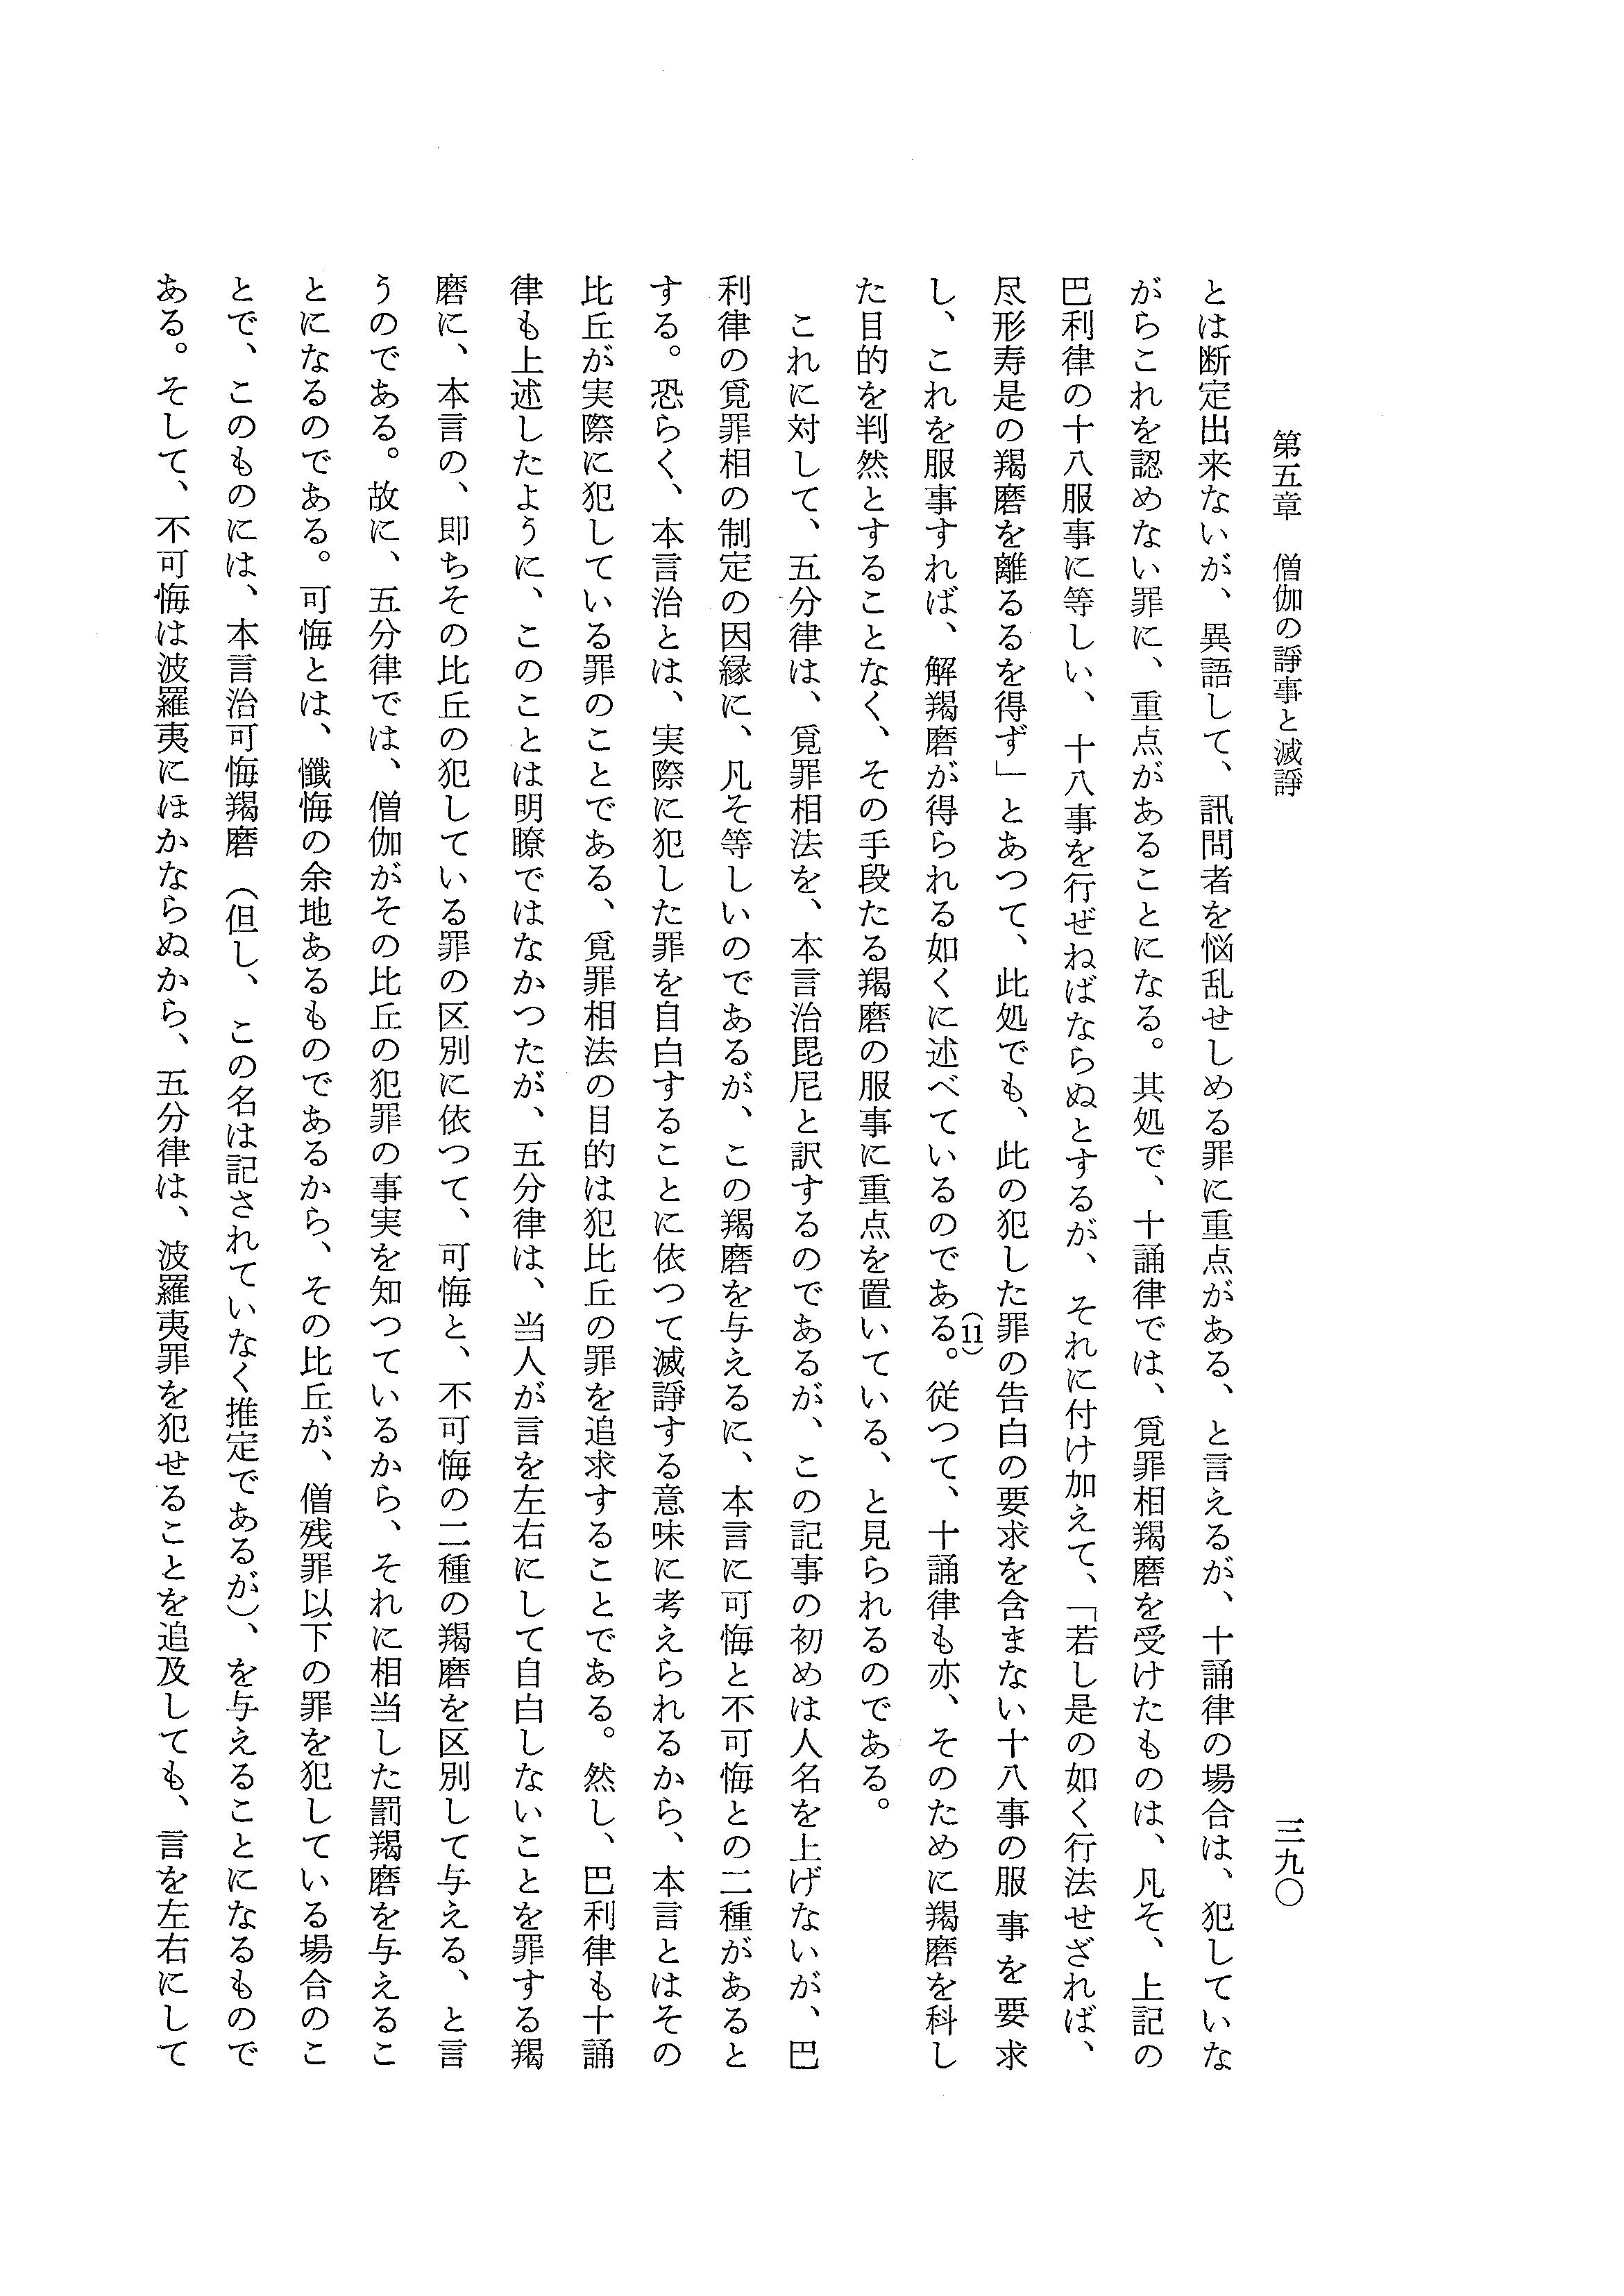 第五章　僧伽の諍事と滅諍
三九〇
とは断定出来ないが、異語して、訊問者を悩乱せしめる罪に重点がある、と言えるが、十誦律の場合は、犯していな
がらこれを認めない罪に、重点があることになる。其処で、十誦律では、覓罪相羯磨を受けたものは、凡そ、上記の
巴利律の十八服事に等しい、十八事を行ぜねばならぬとするが、それに付け加えて、「若し是の如く行法せざれば、
尽形寿是の羯磨を離るるを得ず」とあつて、此処でも、此の犯した罪の告白の要求を含まない十八事の服事を要求
し、これを服事すれば、解羯磨が得られる如くに述べているのである。(11)従つて、十誦律も亦、そのために羯磨を科し
た目的を判然とすることなく、その手段たる羯磨の服事に重点を置いている、と見られるのである。
これに対して、五分律は、覓罪相法を、本言治毘尼と訳するのであるが、この記事の初めは人名を上げないが、巴
利律の覓罪相の制定の因縁に、凡そ等しいのであるが、この羯磨を与えるに、本言に可悔と不可悔との二種があると
する。恐らく、本言治とは、実際に犯した罪を自白することに依つて滅諍する意味に考えられるから、本言とはその
比丘が実際に犯している罪のことである、覓罪相法の目的は犯比丘の罪を追求することである。然し、巴利律も十誦
律も上述したように、このことは明瞭ではなかつたが、五分律は、当人が言を左右にして自白しないことを罪する羯
磨に、本言の、即ちその比丘の犯している罪の区別に依つて、可悔と、不可悔の二種の羯磨を区別して与える、と言
うのである。故に、五分律では、僧伽がその比丘の犯罪の事実を知つているから、それに相当した罰羯磨を与えるこ
とになるのである。可悔とは、懺悔の余地あるものであるから、その比丘が、僧残罪以下の罪を犯している場合のこ
とで、このものには、本言治可悔羯磨（但し、この名は記されていなく推定であるが）、を与えることになるもので
ある。そして、不可悔は波羅夷にほかならぬから、五分律は、波羅夷罪を犯せることを追及しても、言を左右にして